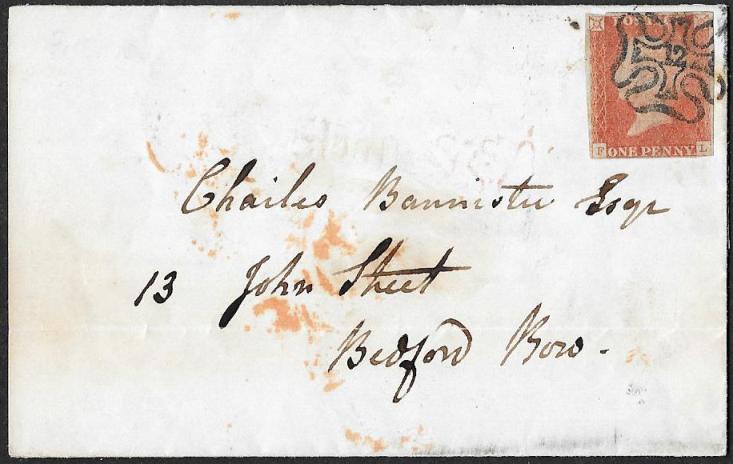 POSTAGE
12
F L
ONE PENNY
Charles Bannister Esqr
13 John Street
Bedford Row.